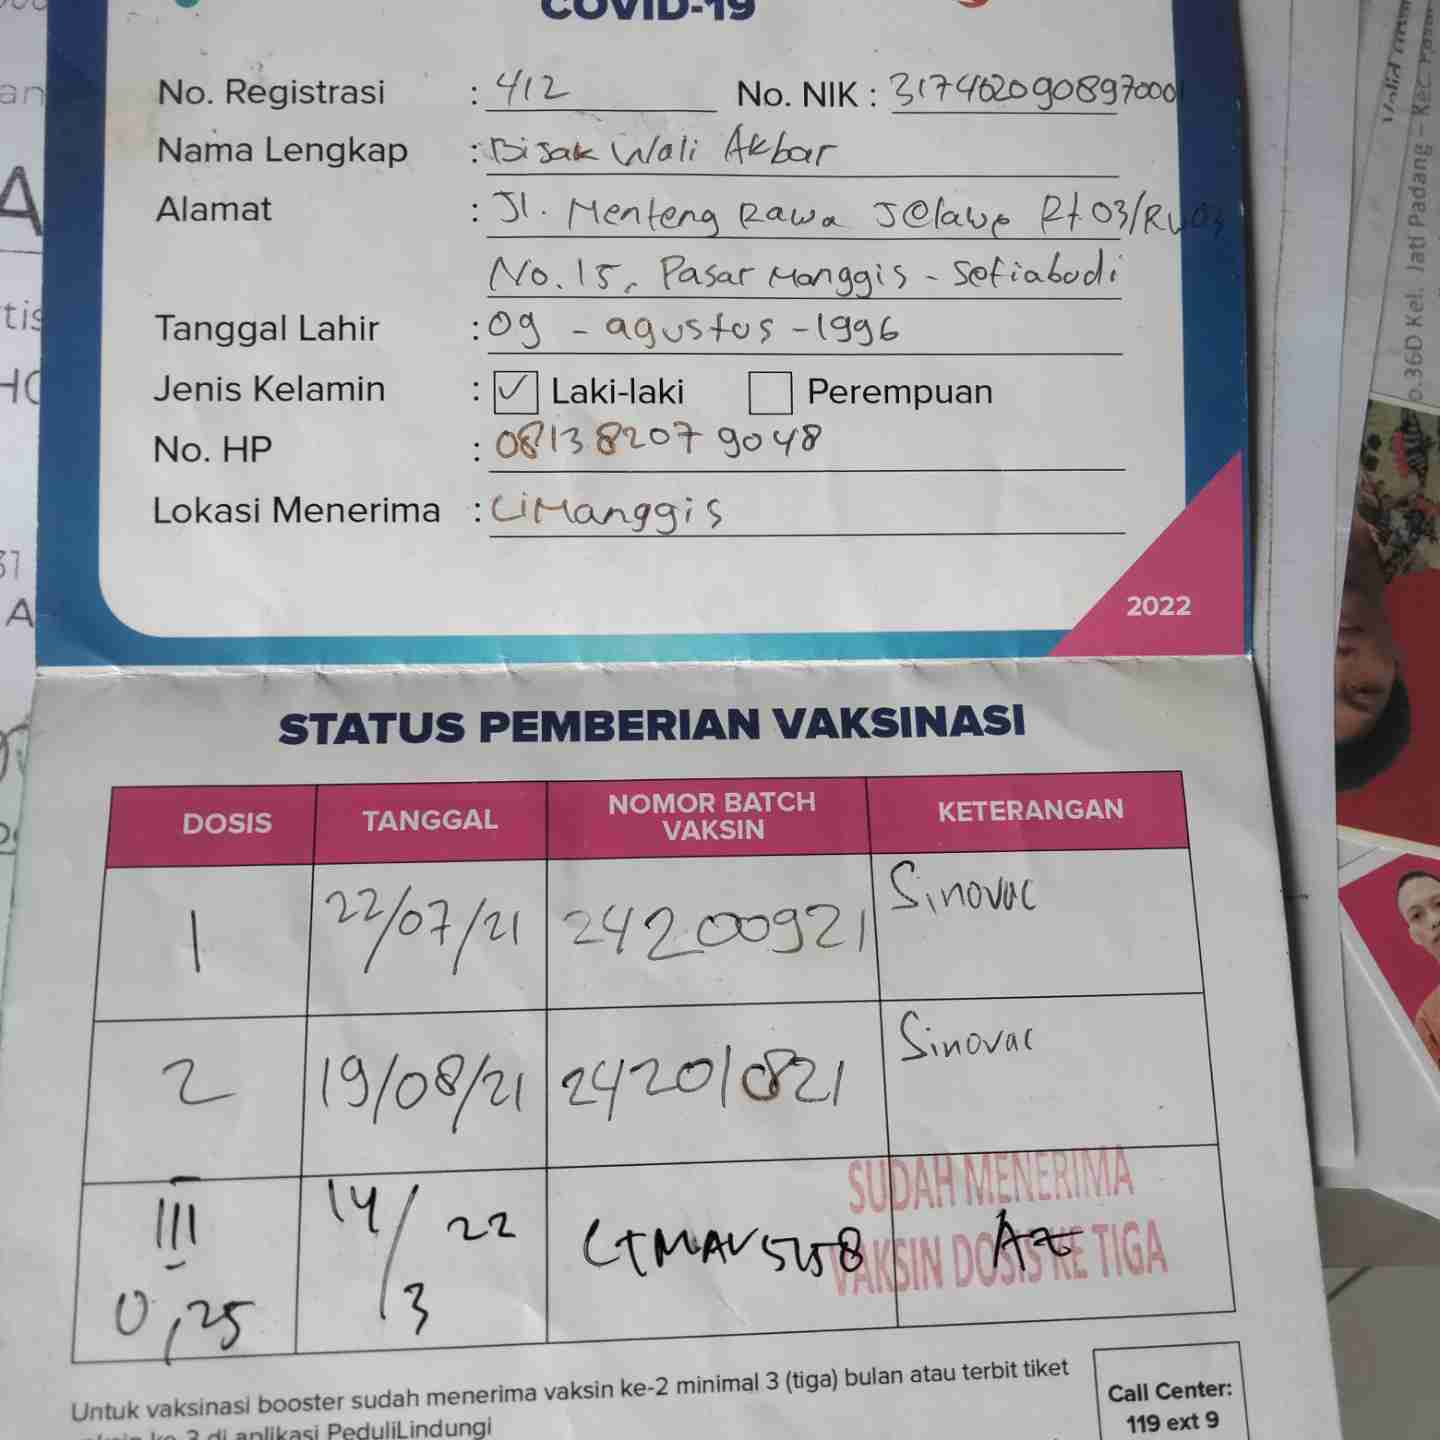 COVID-19
No. Registrasi : 412 No. NIK : 3174020908970001
Nama Lengkap : Bisak Wali Akbar
Alamat : Jl. Menteng Rawa Jelawe Rt 03/RW 03
No. 15, Pasar Manggis - Setiabudi
Tanggal Lahir : 09 - agustus - 1996
Jenis Kelamin : ✓ Laki-laki Perempuan
No. HP : 081382079048
Lokasi Menerima : CiManggis
2022
STATUS PEMBERIAN VAKSINASI
DOSIS TANGGAL NOMOR BATCH VAKSIN KETERANGAN
1 22/07/21 24200921 Sinovac
2 19/08/21 242010821 Sinovac
III 14/3 22 AZ
0,25
SUDAH MENERIMA
VAKSIN DOSIS KE TIGA
Untuk vaksinasi booster sudah menerima vaksin ke-2 minimal 3 (tiga) bulan atau terbit tiket
ke-3 di aplikasi PeduliLindungi
Call Center:
119 ext 9
Kel. Jati Padang - Kec.